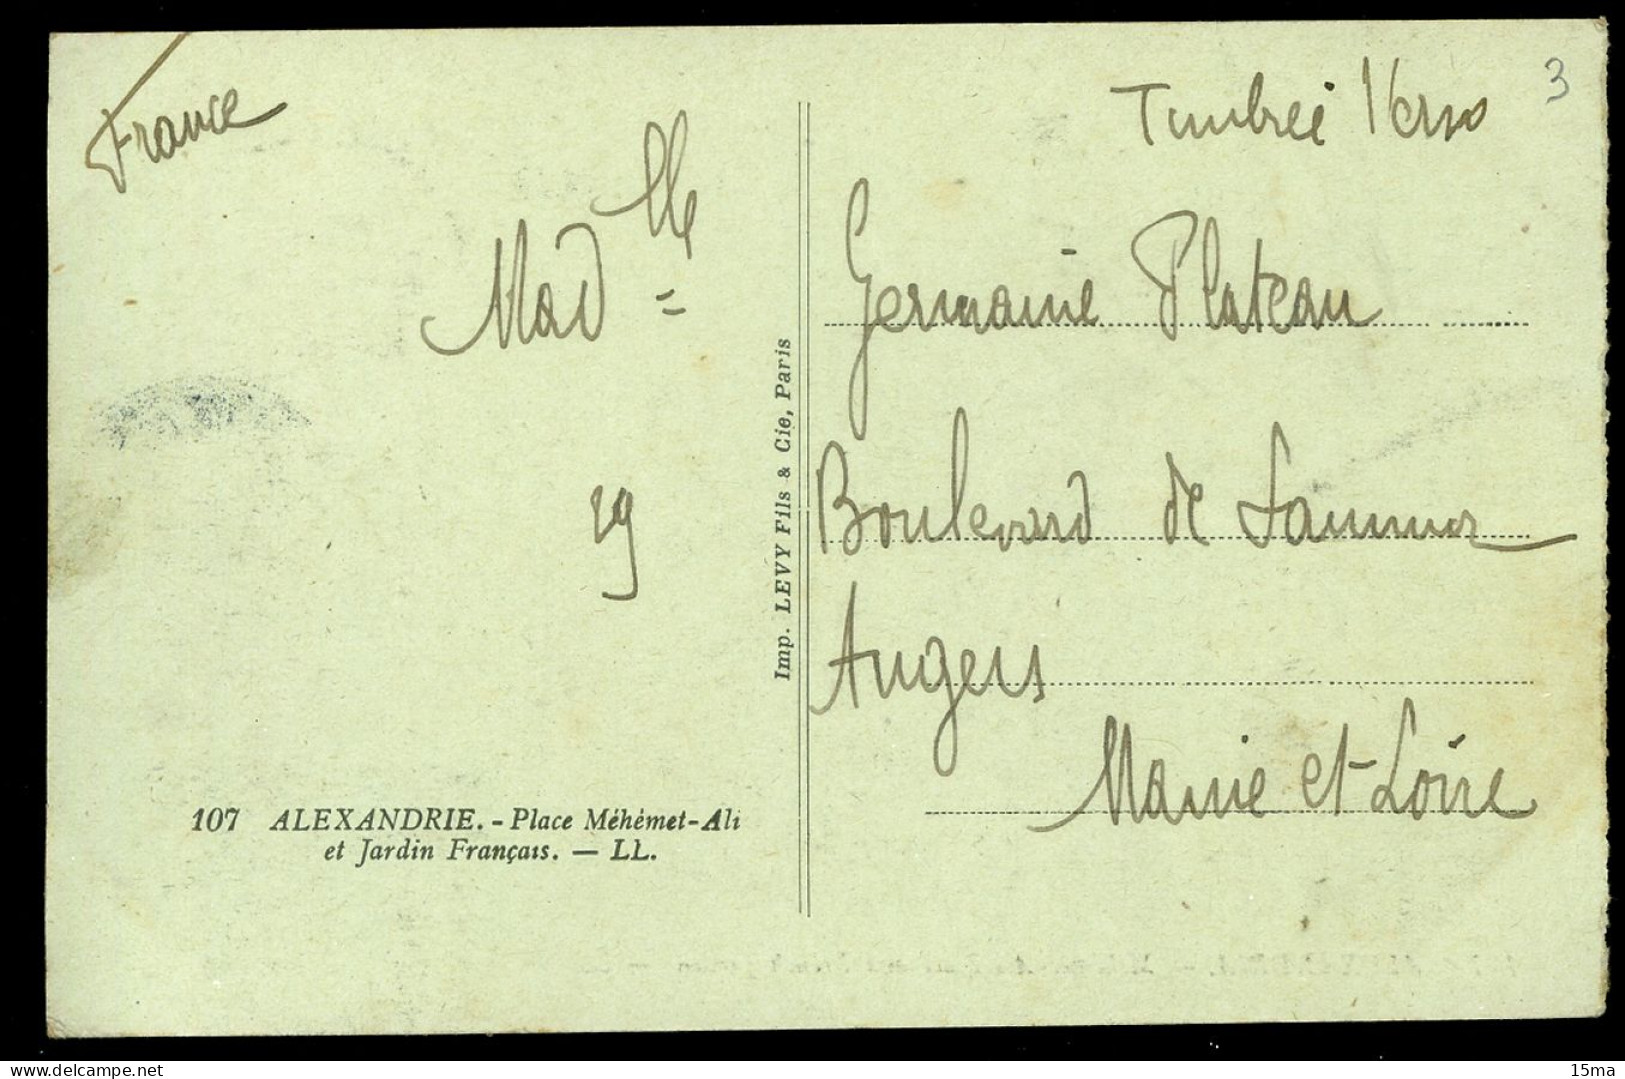 France
Mad lle =
29
107 ALEXANDRIE. - Place Méhémet-Ali
et Jardin Français. — LL.
Imp. LEVY Fils & Cie, Paris
Timbrée Verso
3
Germaine Plateau
Boulevard de Saumur
Angers
Maine et-Loire
15ma